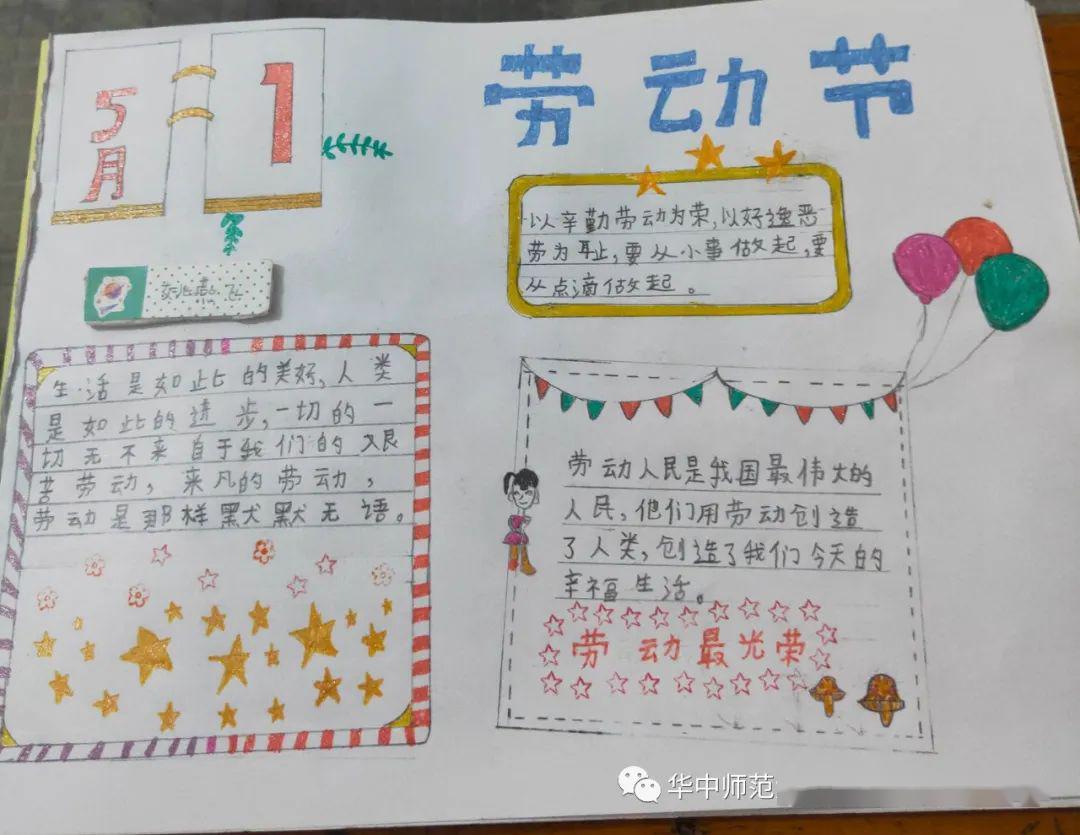 5
月
1
劳动节
以辛勤劳动为荣,以好逸恶
劳为耻,要从小事做起,要
从点滴做起。
生活是如此的美好,人类
是如此的进步,一切的一
切无不来自于我们的艰
苦劳动,来凡的劳动,
劳动是那样默默无语。
劳动人民是我国最伟大的
人民,他们用劳动创造
了人类,创造了我们今天的
幸福生活。
劳动最光荣
华中师范